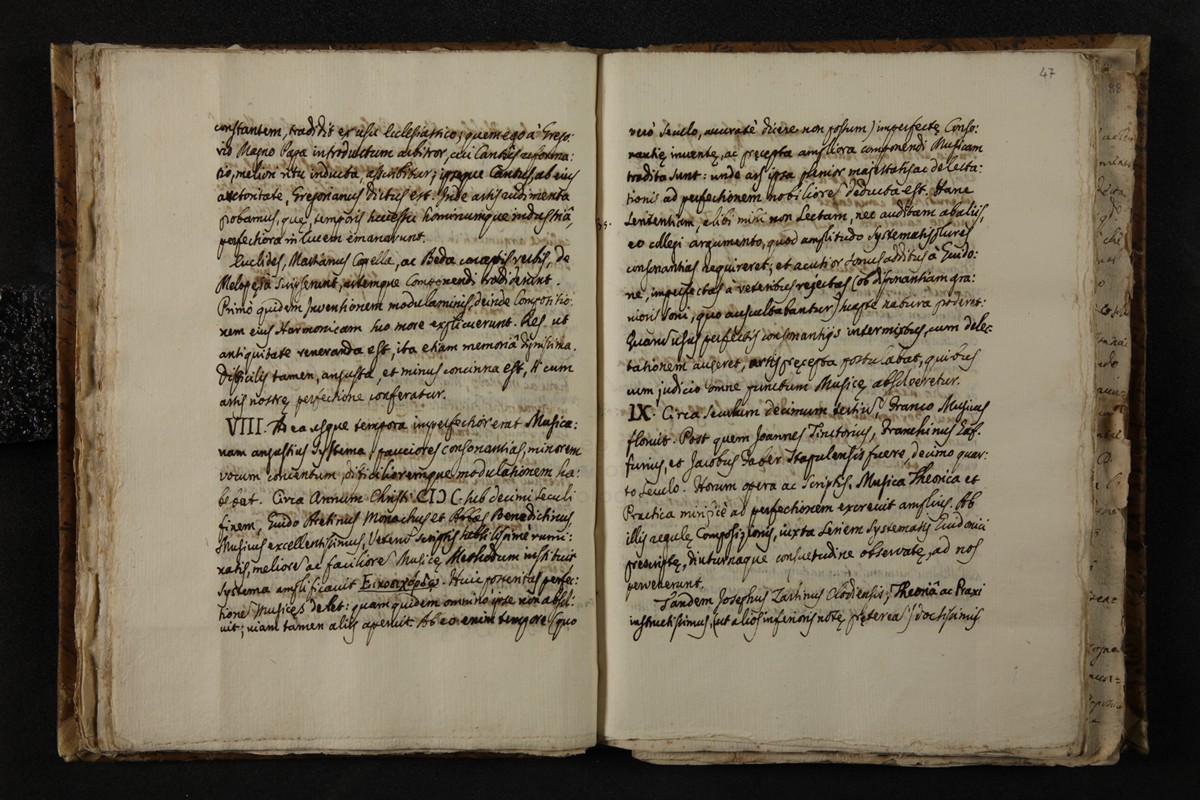 constantem, tradidit ex usu Ecclesiastico; quem ego à Grego:
rio Magno Papa introductum arbitror, cui Cantûs reforma:
tio, meliori ritu inducta ascribitur; ipseque Cantus ab eius
auctoritate, Gregorianus dictus est. Inde artis rudimenta
probamus, quę, temporis successu hominumque industriâ,
perfectiora in lucem emanarunt.
Euclides, Martianus Capella, ac Beda conceptis verbis, de
Melopęia scripserunt, artemque Componendi tradiderunt.
Primò quidem Inventionem modulaminis, deinde Compositio:
nem eius Harmonicam suo more explicuerunt. Res, ut
antiquitate veneranda est, ita etiam memoriâ dignissima.
Difficilis tamen, angusta, et minus concinna est, si cum
artis nostrę perfectione conferatur.
VIII. Ad ea usque tempora imperfectior erat Musica:
nam angustius Systema, pauciores consonantias, minorem
vocum concentum, difficilioremque modulationem ha:
bebat. Circa Annum Christi CIↃ C sub decimi seculi
finem, Guido Aretinus Monachus et Abbas Benedictinus
Musicus excellentissimus, Veterũ scriptis subtilissimè rumi:
natis, meliorẽ ac faciliorẽ Musicę Methodum instituit
Systema amplificavit Εικοσιχορδω. Huic posteritas perfec:
tionẽ Musices debet: quam quidem omnino ipse non absol:
vit; viam tamen aliis aperuit. Ab eo enim tempore (quo
47
verò seculo, accuratè dicere non possum) imperfectę Conso:
nantię inventę, ac pręcepta ampliora componendi Musicam
tradita sunt: unde ars ipsa plenior majestatis ac delecta:
tionis ad perfectionem nobiliorẽ deducta est. Hanc
sententiam, alibi mihi non Lectam, nec auditam ab aliis,
eo collegi argumento, quod amplitudo Systematis plures
consonantias requireret, et acutior sonus additus à Guido:
ne, imperfectas à veteribus rejectas (ob dissonantiam gra:
vioris soni, quo auscultabantur) suapte natura proderet.
Quarũ usus perfectis consonantijs intermixtus, cum delec:
tationem augeret, artis pręcepta postulabat, quibus
cum judicio omne punctum Musicę absolveretur.
IX. Circa seculum decimum tertiũ, Franco Musicus
floruit. Post quem Joannes Tinctorius, Franchinus Gaf:
furius, et Jacobus Faber Stapulensis fuere, decimo quar:
to seculo. Horum opera ac scriptis, Musica Theorica et
Practica mirificè ad perfectionem excrevit amplius. Ab
illis regulę Compositionis, iuxta seriem Systematis Guidonici
prescriptę, diuturnaque consuetudine observatę, ad nos
pervenerunt.
Tandem Josephus Zarlinus Clodiensis, Theoriâ ac Praxi
instructissimus, (ut alios inferioris notę pręteream) doctissimis